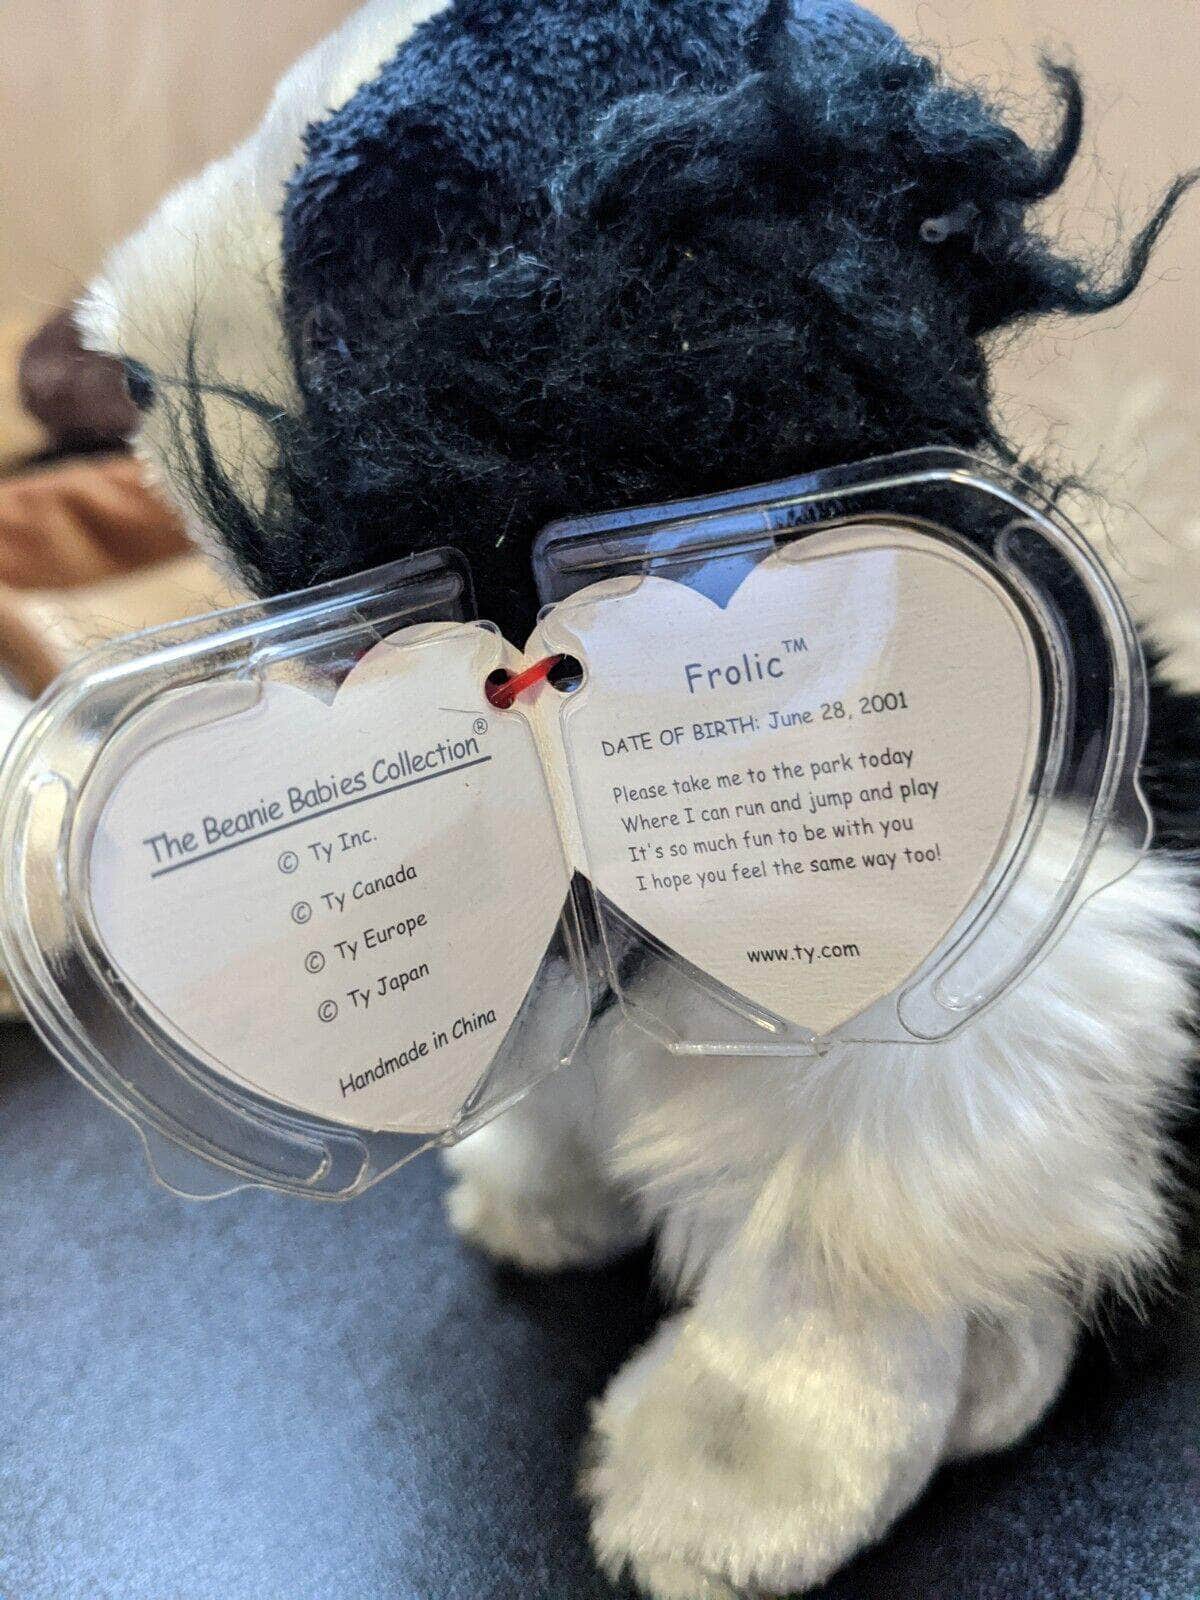 The Beanie Babies Collection®
© Ty Inc.
© Ty Canada
© Ty Europe
© Ty Japan
Handmade in China
Frolic™
DATE OF BIRTH: June 28, 2001
Please take me to the park today
Where I can run and jump and play
It's so much fun to be with you
I hope you feel the same way too!
www.ty.com